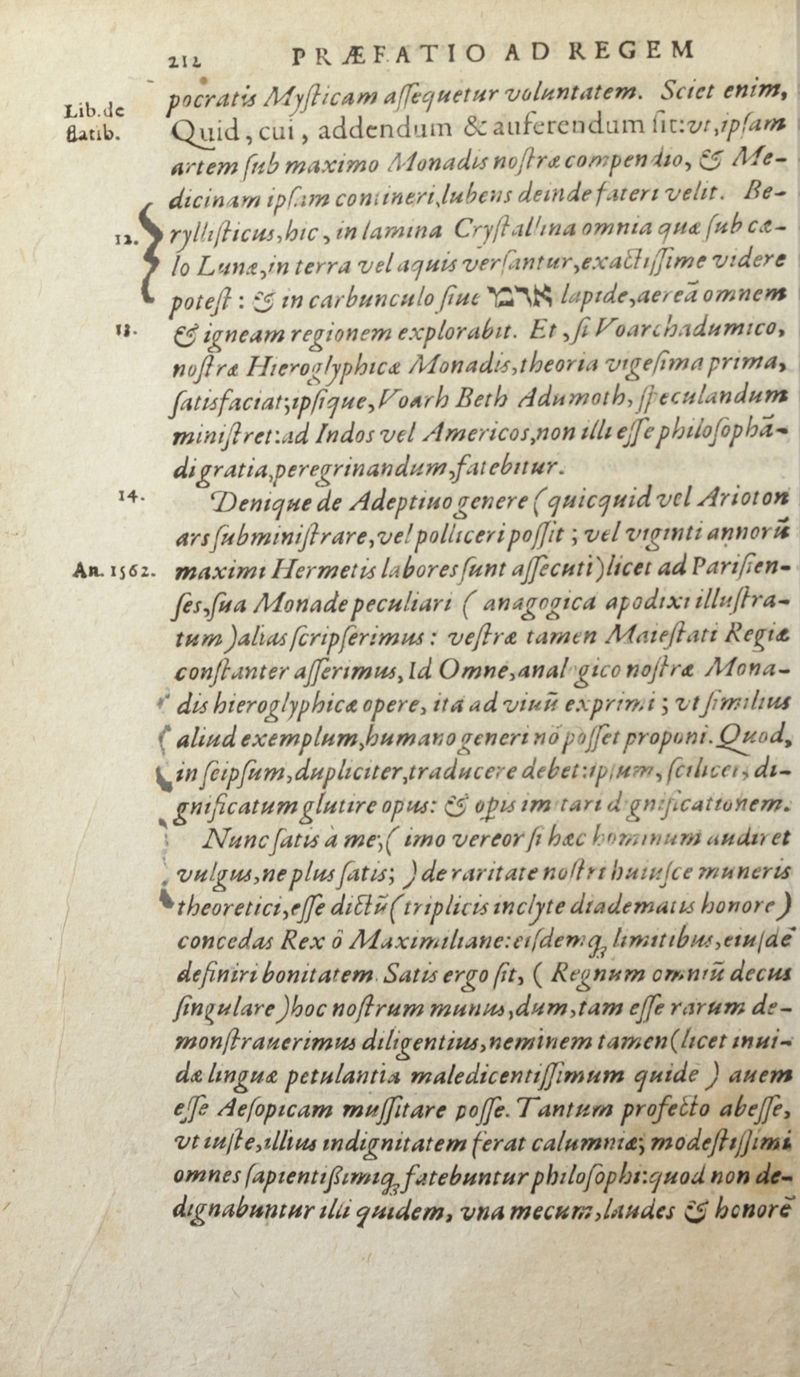 212 PRÆFATIO AD REGEM
pocratis Myſticam aſſequetur voluntatem. Sciet enim,
Lib. de
flatib.
Quid, cui, addendum & auferendum ſit: vt, ipſam
artem ſub maximo Monadis noſtræ compendio, & Me-
dicinam ipſam contineri, lubens deinde fateri velit. Be-
12. rylliſticus, hic, in lamina Cryſtallina omnia quæ ſub cæ-
lo Lunæ, in terra vel aquis verſantur, exactiſſime videre
poteſt: & in carbunculo ſiue lapide, aereã omnem
13. & igneam regionem explorabit. Et, ſi Voarchadumico,
noſtræ Hieroglyphicæ Monadis, theoria vigeſima prima,
ſatisfaciat; ipſique, Voarh Beth Adumoth, ſpeculandum
miniſtret: ad Indos vel Americos, non illi eſſe philoſophã-
di gratia, peregrinandum, fatebitur.
14. Denique de Adeptiuo genere (quicquid vel Arioton
ars ſubminiſtrare, vel polliceri poſſit; vel viginti annorũ
An. 1562. maximi Hermetis labores ſunt aſſecuti) licet ad Pariſien-
ſes, ſua Monade peculiari (anagogica apodixi illuſtra-
tum) alias ſcripſerimus: veſtræ tamen Maieſtati Regiæ
conſtanter aſſerimus, Id Omne, anal gico noſtræ Mona-
dis hieroglyphicæ opere, ita ad viuũ exprimi; vt ſimilius
aliud exemplum, humano generi nõ poſſet proponi. Quod,
in ſeipſum, dupliciter, traducere debet: ipſum, ſcilicet, di-
gnificatum glutire opus: & opus imitari dignificationem.
Nunc ſatis à me, (imo vereor ſi hæc hominum audiret
vulgus, ne plus ſatis;) de raritate noſtri huiuſce muneris
theoretici, eſſe dictũ (triplicis inclyte diadematis honore)
concedas Rex ô Maximiliane: eiſdemq; limitibus, eiuſdẽ
definiri bonitatem. Satis ergo ſit, (Regnum omniũ decus
ſingulare) hoc noſtrum munus, dum, tam eſſe rarum de-
monſtrauerimus diligentius, neminem tamen (licet inui-
dæ linguæ petulantia maledicentiſſimum quidẽ) auem
eſſe Aeſopicam muſſitare poſſe. Tantum profecto abeſſe,
vt iuſte, illius indignitatem ferat calumniæ; modeſtiſſimi
omnes ſapientiſsimiq; fatebuntur philoſophi: quod non de-
dignabuntur illi quidem, vna mecum, laudes & honorẽ